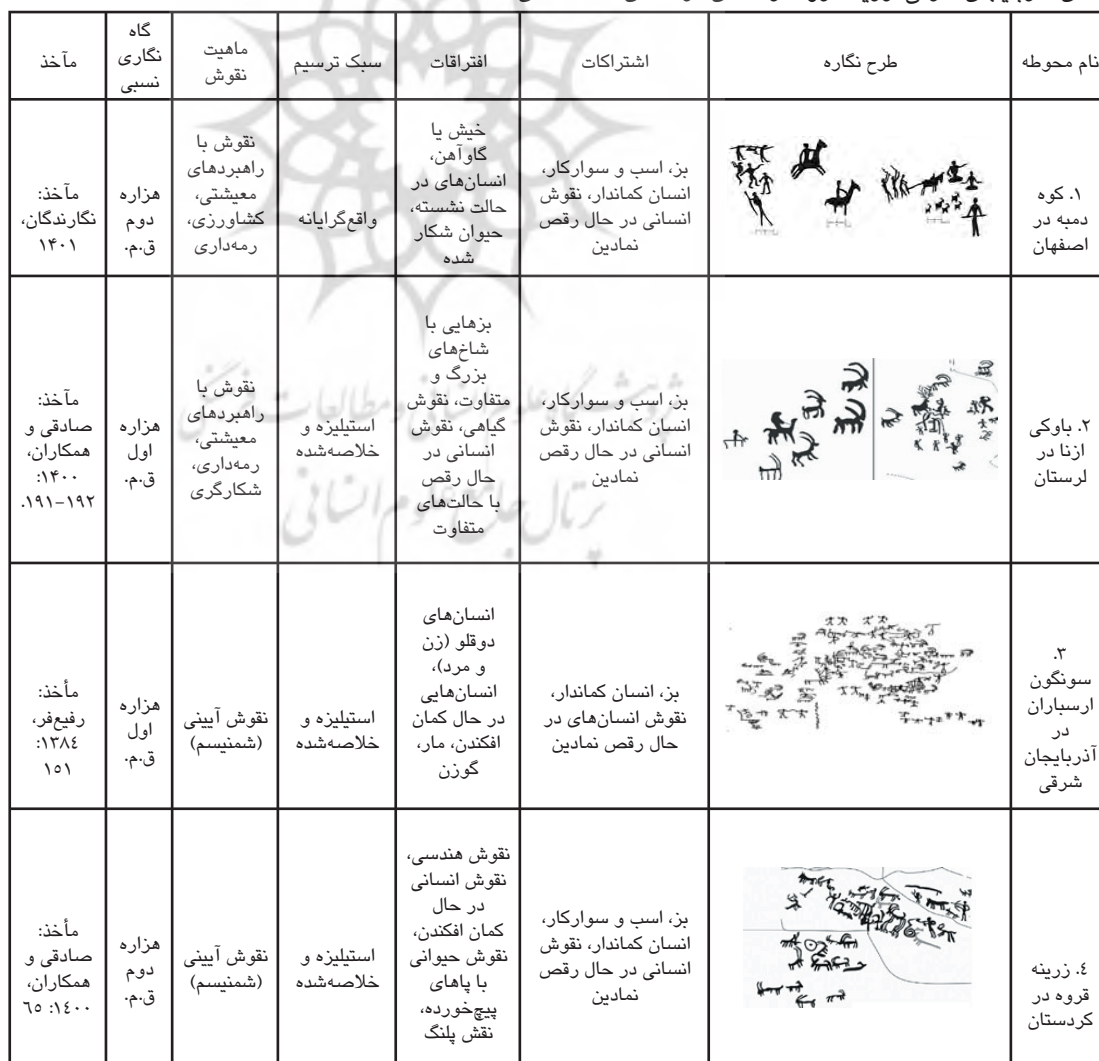 نام محوطه
طرح نگاره
اشتراکات
افتراقات
سبک ترسیم
ماهیت
نقوش
گاه
نگاری
نسبی
مآخذ
۱. کوه
دمبه در
اصفهان
بز، اسب و سوارکار،
انسان کماندار، نقوش
انسانی در حال رقص
نمادین
خیش یا
گاوآهن،
انسان‌های در
حالت نشسته،
حیوان شکار
شده
واقع‌گرایانه
نقوش با
راهبردهای
معیشتی،
کشاورزی،
رمه‌داری
هزاره
دوم
ق.م.
مآخذ:
نگارندگان،
۱۴۰۱
۲. باوکی
ازنا در
لرستان
بز، اسب و سوارکار،
انسان کماندار، نقوش
انسانی در حال رقص
نمادین
بزهایی با
شاخ‌های
بزرگ و
متفاوت، نقوش
گیاهی، نقوش
انسانی در
حال رقص
با حالت‌های
متفاوت
استیلیزه و
خلاصه‌شده
نقوش با
راهبردهای
معیشتی،
رمه‌داری،
شکارگری
هزاره
اول
ق.م.
مآخذ:
صادقی و
همکاران،
۱۴۰۰:
۱۹۱-۱۹۲.
۳.
سونگون
ارسباران
در
آذربایجان
شرقی
بز، انسان کماندار،
نقوش انسان‌های در
حال رقص نمادین
انسان‌های
دوقلو (زن
و مرد)،
انسان‌هایی
در حال کمان
افکندن، مار،
گوزن
استیلیزه و
خلاصه‌شده
نقوش آیینی
(شمنیسم)
هزاره
اول
ق.م.
مأخذ:
رفیع‌فر،
۱۳۸٤:
۱٥۱
٤. زرینه
قروه در
کردستان
بز، اسب و سوارکار،
انسان کماندار، نقوش
انسانی در حال رقص
نمادین
نقوش هندسی،
نقوش انسانی
در حال
کمان افکندن،
نقوش حیوانی
با پاهای
پیچ‌خورده،
نقش پلنگ
استیلیزه و
خلاصه‌شده
نقوش آیینی
(شمنیسم)
هزاره
دوم
ق.م.
مأخذ:
صادقی و
همکاران،
۱٤۰۰: ٦٥
پژوهشگاه علوم انسانی و مطالعات فرهنگی
پرتال جامع علوم انسانی